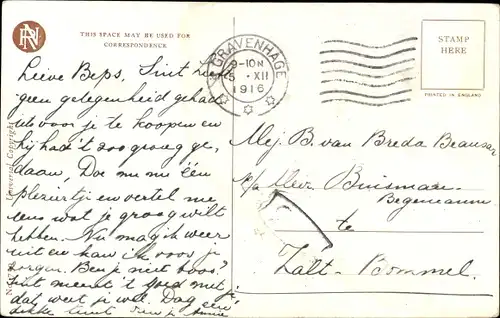 THIS SPACE MAY BE USED FOR
CORRESPONDENCE
STAMP
HERE
PRINTED IN ENGLAND
'S GRAVENHAGE
9-10N
5 XII
1916
Universal Copyright
Lieve Beps, Sint heeft
geen gelegenheid gehad
iets voor je te koopen en
hij had 't zoo graag ge-
daan, Doe mij één
pleziertje en vertel me
eens wat je graag wilt
hebben. Nu mag ik weer
uit en kan ik voor je
zorgen. Ben je niet boos?
Sint meent 't goed met je
dat weet je wel. Dag een
dikke
Mej. B. van Breda Beausar
p/a Mevr. Buisman-
Begemann
te
Zalt-Bommel.